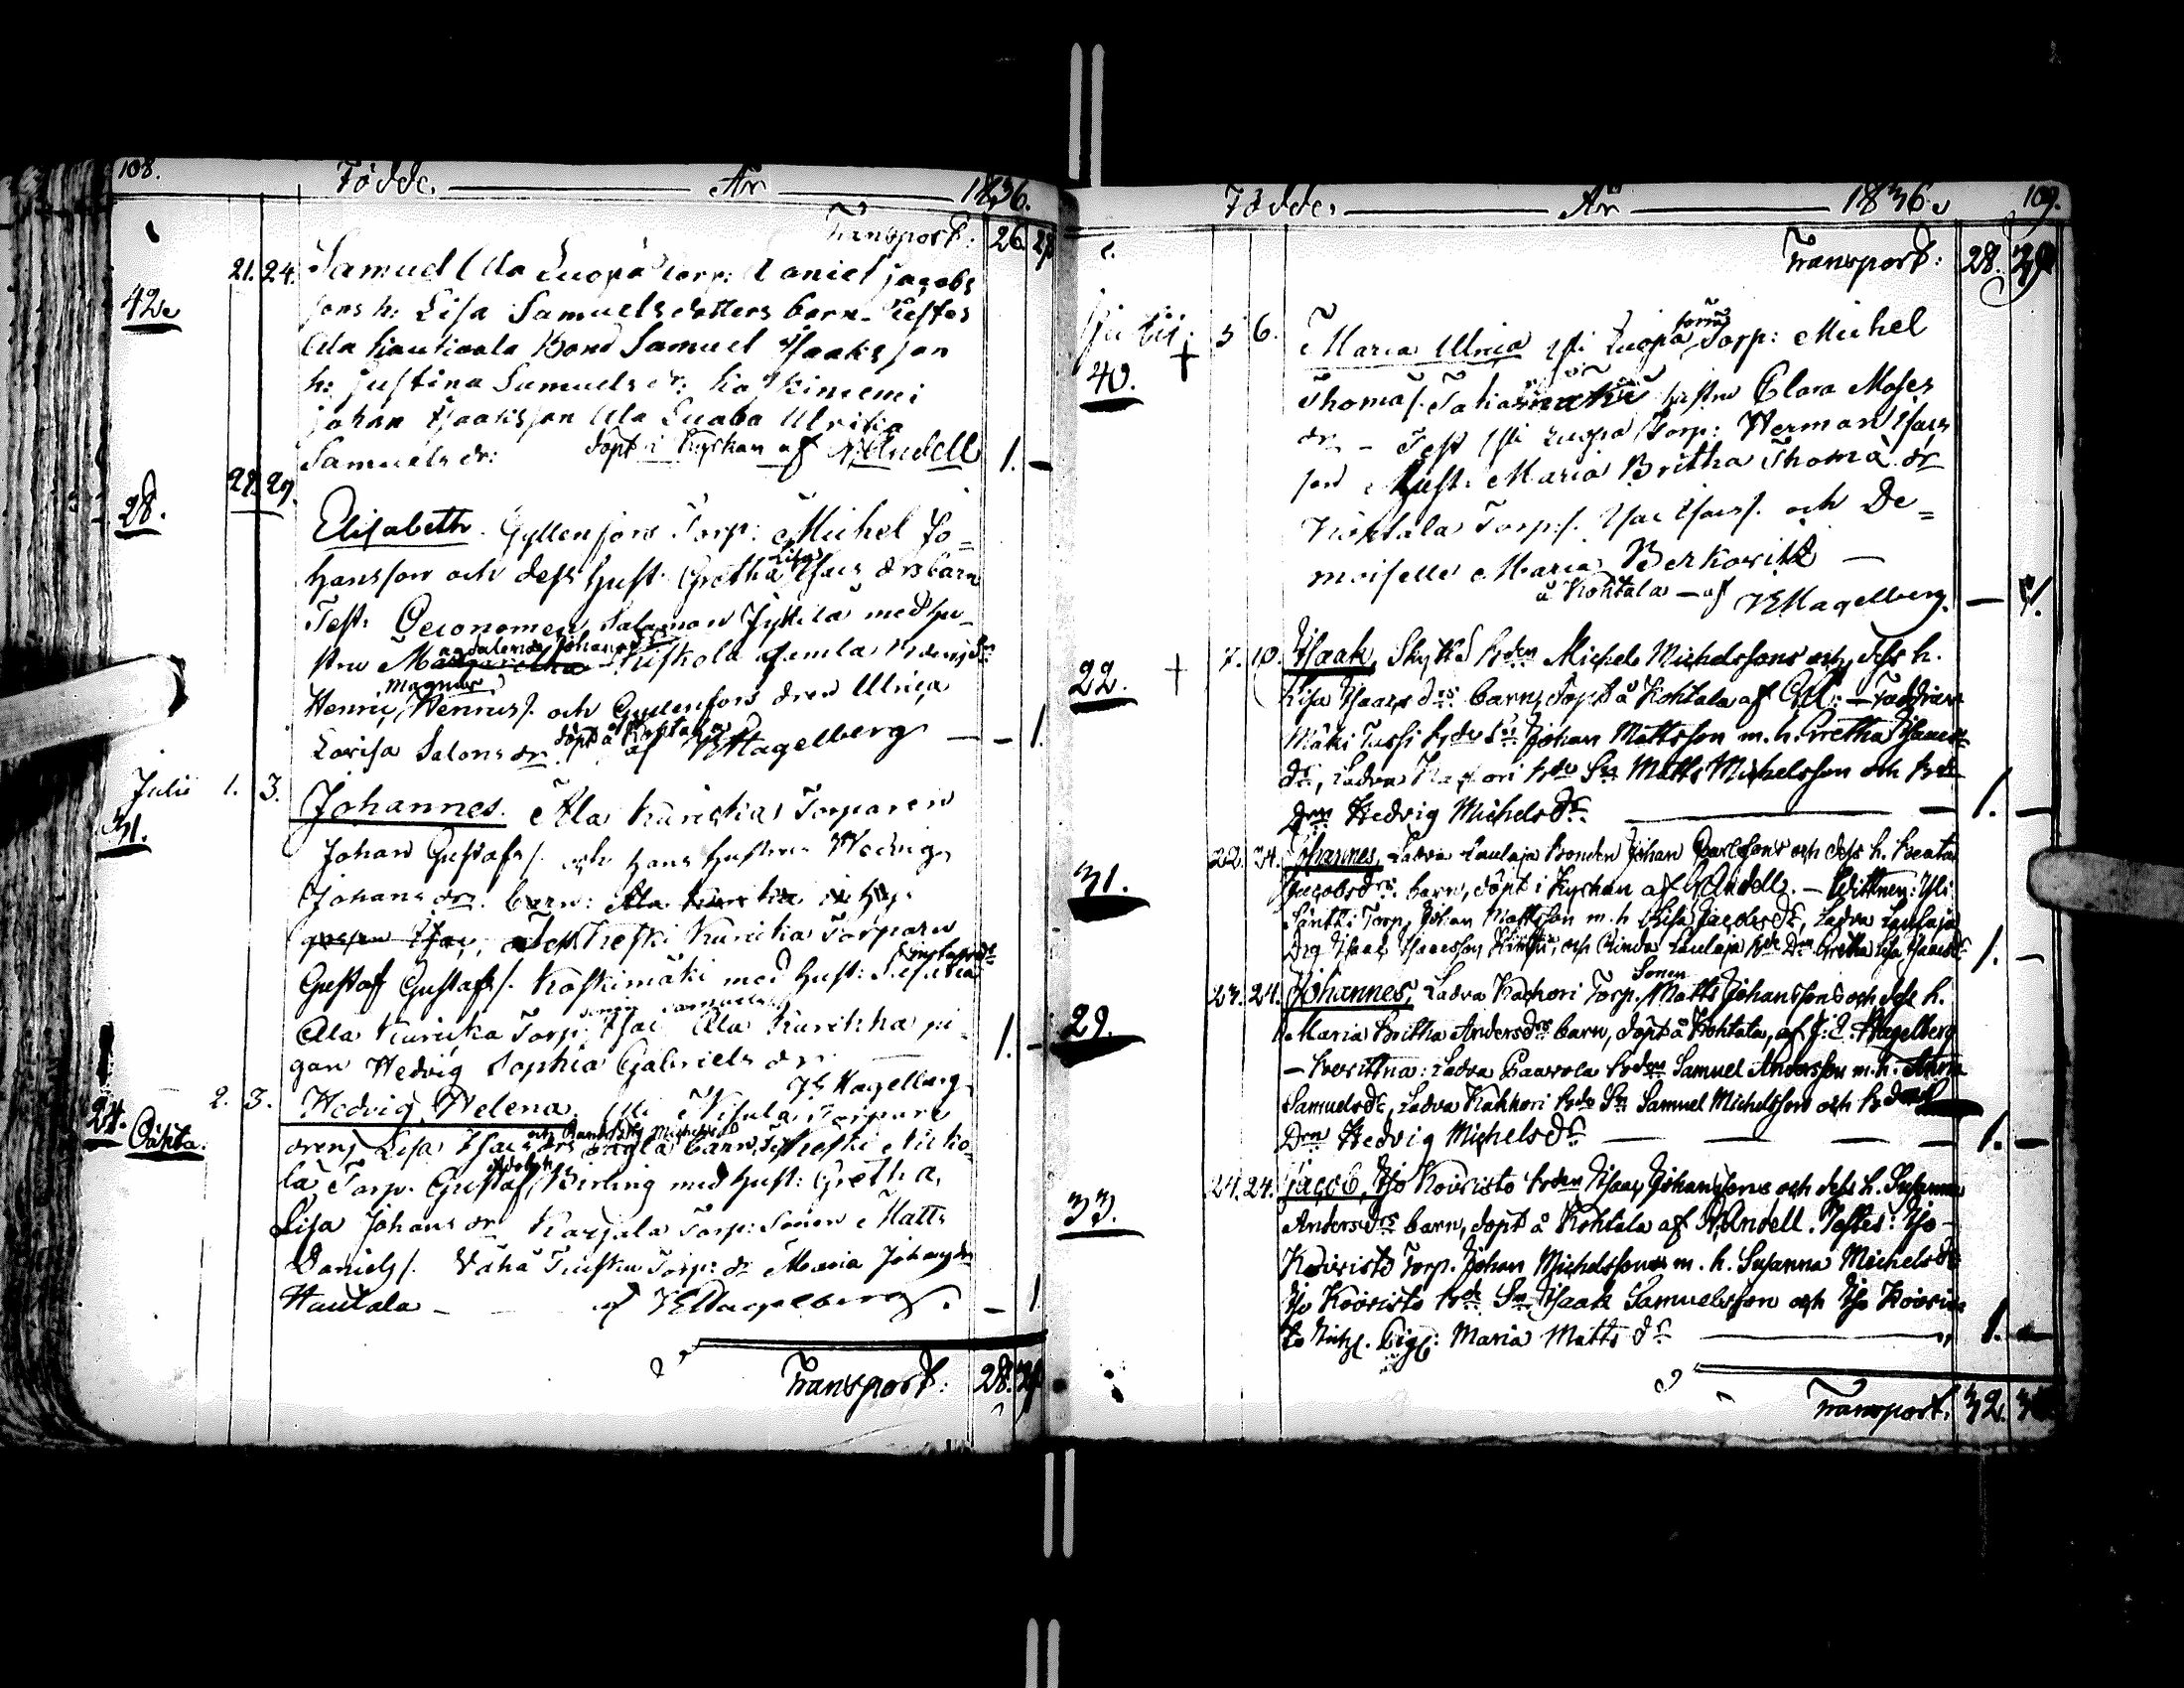 108. Födde. År 1836.
Transport: 26. 27
42.
21. 24. Samuel Ala Luopa torp: Daniel Jacobs
sons h: Lisa Samuelsdotters barn. Testes
Ala Bond Samuel Isaaksson
h: Justina Samuels dr: Koskiniemi
Johan Isaaksson Ala Luoba Ulrika
Samuels dr: döpt i Kyrkan af N. Andell 1. —
28.
27. 29.
Elisabeth. Gyllenfors Torp: Michel Jo=
hansson och dess Hust. Gretha Lisa Isacs drs barn
Test: Oeconomen Salamon Jyllilä med hu-
stru Magdalena Johans dr gamla
Henric Magnus Henriss. och Gyllenfors dren Ulrica
Lovisa Salons dr. döpt å Kohtala af JE Hagelberg — — 1.
Julii 1. 3.
31.
Johannes. Ala Kurikka Torparen
Johan Gustafs/. och hans hustru Hedvig
Johans drs. barn: Ala
Test Keski Kurikka Torparn
Gustaf Gustafs/. Koskimäki med hust: Gustafsdr
Ala Kurikka Torp: Isac Ala Kurikka pi-
gan Hedvig Sophia Gabriels dr — 1. —
JE Hagelberg
24. Oäkta.
2. 3. Hedvig Helena. Yli Nikula Torpare
drens Lisa Isacs drs oägta barn, Test Keski Niko-
la Torp. Gustaf Adolph Birling med hust: Gretha
Lisa Johans dr Karjala Torp: Sonen Matts
Daniels/. Vähä Torp: dr Maria Johans dr
Hautala — af JE Hagelberg. — 1
Transport: 28. 29
Födde. År 1836. 109.
Transport: 28. 29
Julii. 5 6.
40. †
Maria Ulrica Yli Luopa Torp: Michel
Thomas/. hustru Clara Moses
dr — Test Yli Luopa Torp: Herman Isacs
son Hust: Maria Britha Thomä dr
Kohtala Torp:/. Isac Isacs/. och De=
moiselle Maria Berkovitz —
å Kohtala — af JE Hagelberg. — 1.
22. † 7. 10. Isaak, Skyttä bden Michel Michelssons och dess h.
Lisa Isaacs drs barn, döpt å Kohtala af — Faddrar
Mäki Tussi bde Sn Johan Mattsson m. h. Gretha Isaacs
dr, Ladva bde Sn Matts Michelsson och bde
Drn Hedvig Michels dr. — 1. —
31. 22. 24. Johannes, Ladva Laulaja Bonden Johan Carlssons och dess h. Beata
Jacobs drs barn, döpt i Kyrkan af N. Andell. — Wittnen: Yli
Säntti Torp. Johan Mattsson m. h Lisa Jacobs dr, Ladva Laulaja
Drg Isaak Isaacsson och Laulaja bde Drn Gretha Lisa Isaacs dr 1. —
29. 23. 24. Johannes, Ladva Kackori Torp. Sonen Matts Johanssons och dess h.
Maria Britha Anders drs barn, döpt å Kohtala, af J. E. Hagelberg
— Ladva Paavola bden Samuel Andersson m. h. Anna
Samuels dr, Ladva Kakkori bde Sn Samuel Michelsson och bde
Drn Hedvig Michels dr. — 1. —
33. 24. 24. Jacob, Iso Koivisto bden Isaac Johanssons och dess h. Susanna
Anders drs barn, döpt å Kohtala af N. Andell. Testes: Iso-
Koivisto Torp. Johan Michelsson m. h. Susanna Michels dr
Iso Koivisto bde Sn Isaak Samuelsson och Iso Koivis-
to Pig: Maria Matts dr — 1. —
Transport. 32.